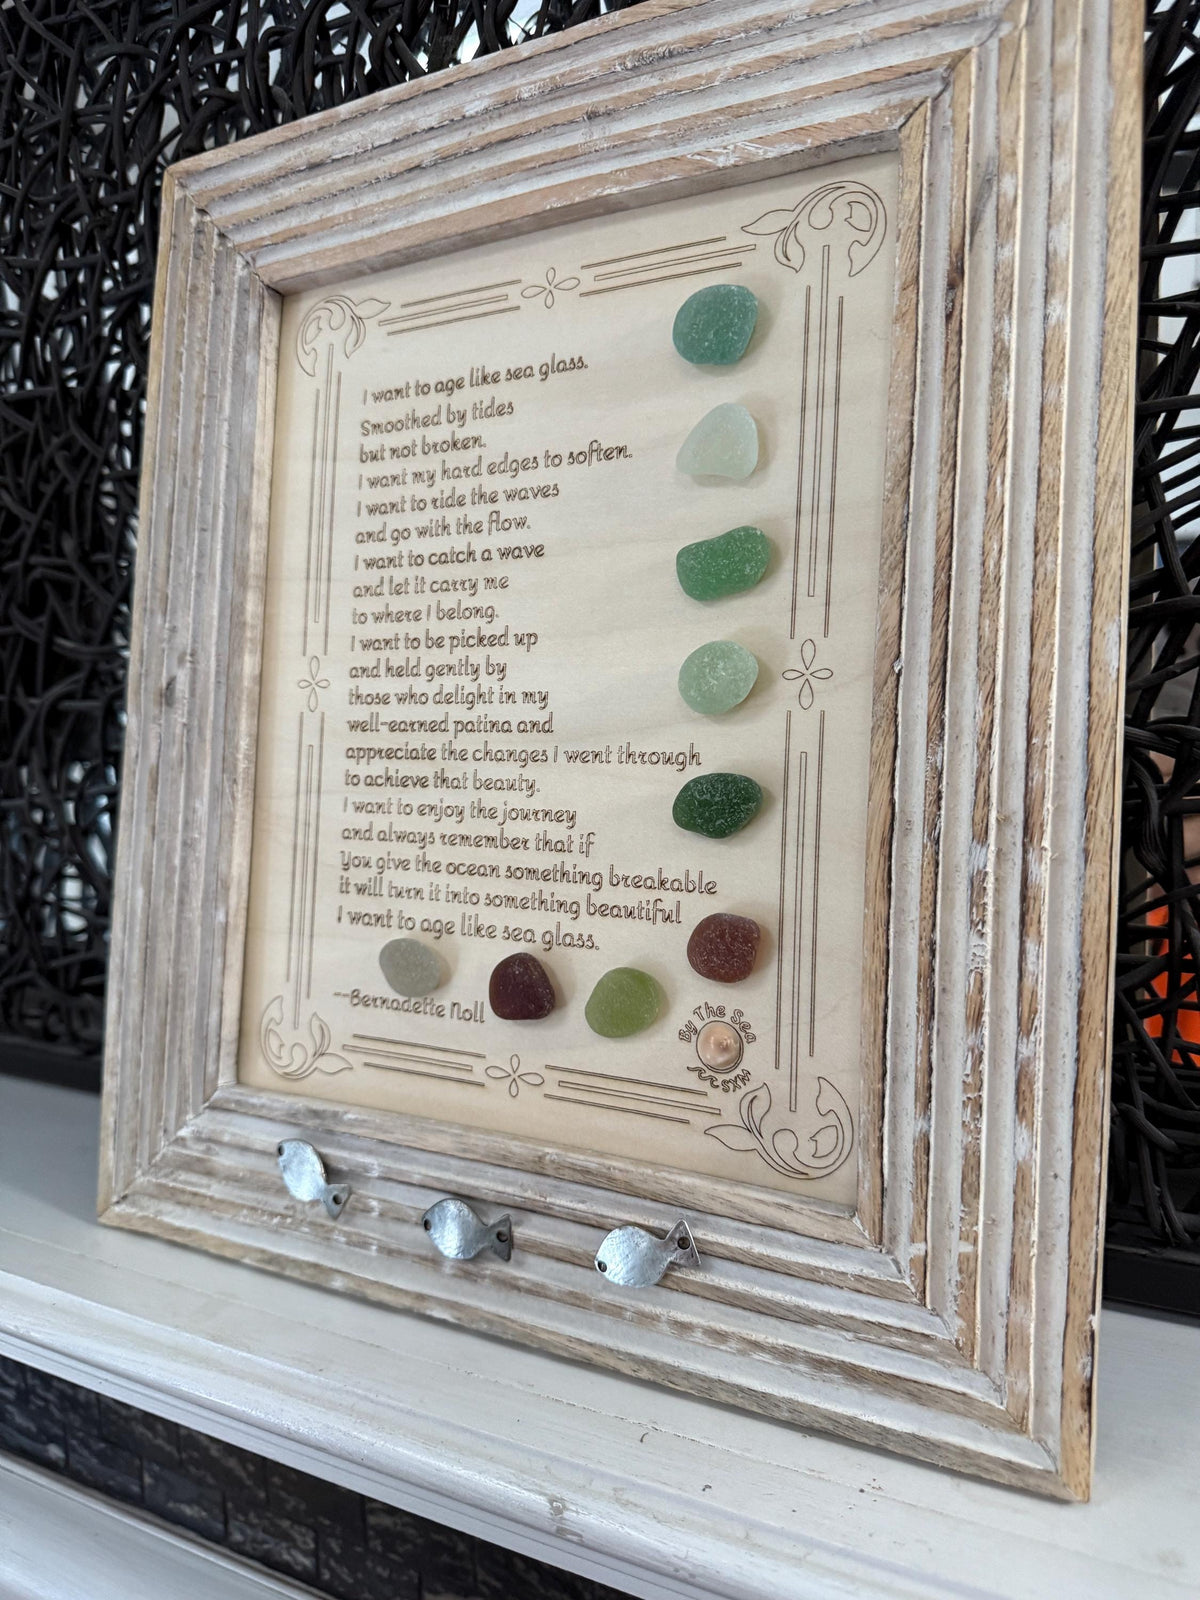 I want to age like sea glass.
Smoothed by tides
but not broken.
I want my hard edges to soften.
I want to ride the waves
and go with the flow.
I want to catch a wave
and let it carry me
to where I belong.
I want to be picked up
and held gently by
those who delight in my
well-earned patina and
appreciate the changes I went through
to achieve that beauty.
I want to enjoy the journey
and always remember that if
You give the ocean something breakable
it will turn it into something beautiful
I want to age like sea glass.
--Bernadette Noll
By The Sea
SXM